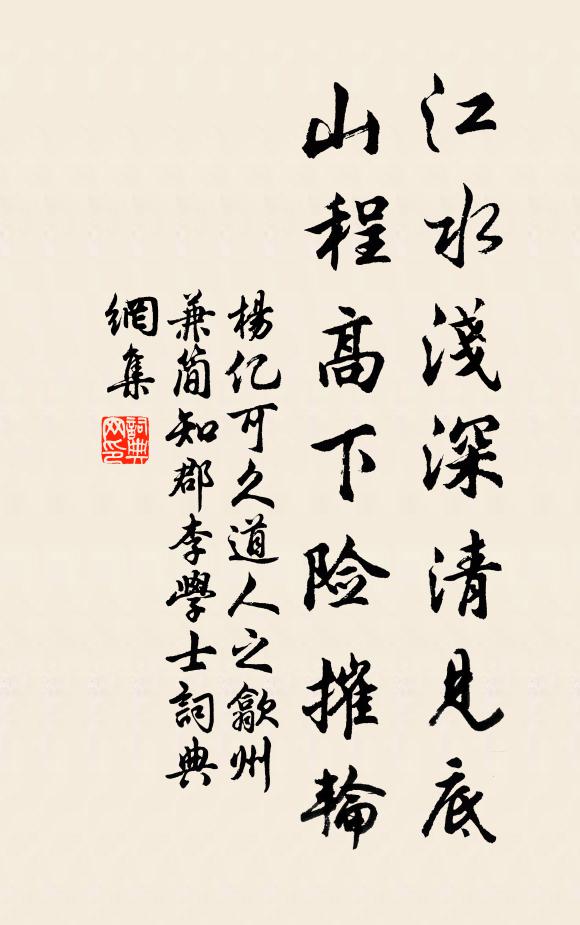 江水淺深清見底
山程高下险摧輪
楊亿可久道人之歙州
兼简知郡李學士詞典
網集
詞典
网印